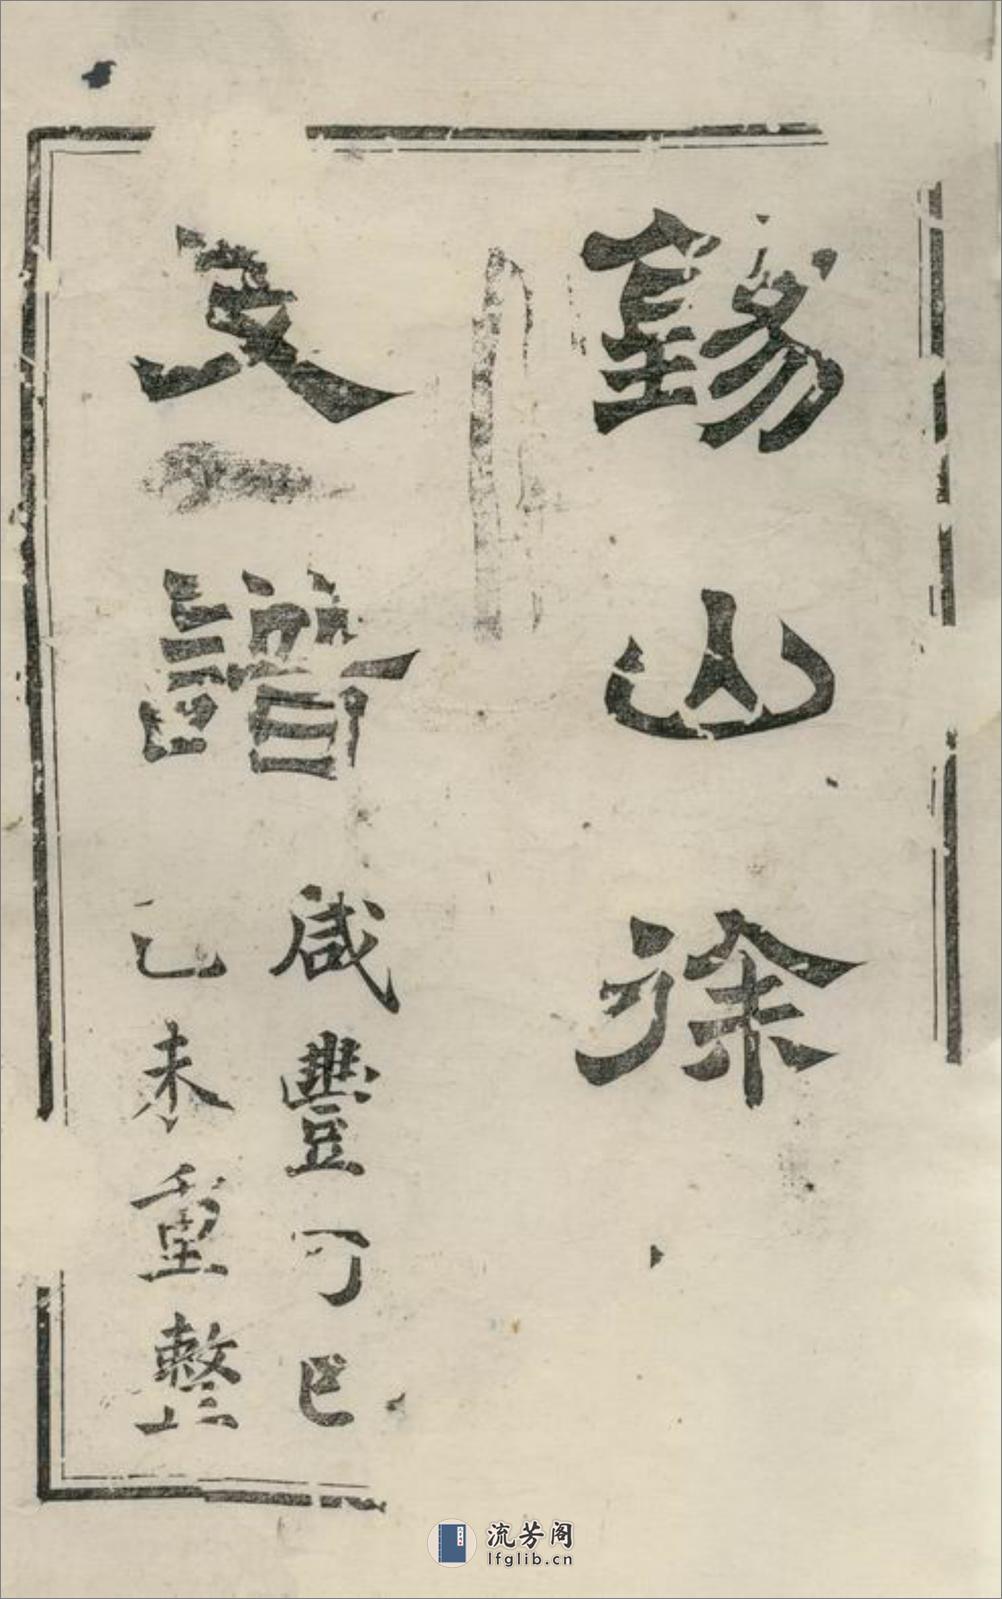 錫山徐
支譜
咸豐丁巳
己未重整
流芳阁
lfglib.cn